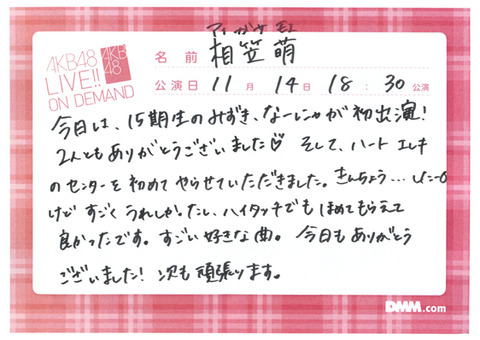 AKB48
LIVE!!
ON DEMAND
AKB
48
アイ がサ モエ
名前 相笠萌
公演日 11月14日 18:30公演
今日は、15期生のみずき、なーにゃが初出演!
2人ともありがとうございました♡ そして、ハート エレキ
のセンターを初めてやらせていただきました。きんちょう…した〜
けど すごく うれしかったし、ハイタッチでも ほめてもらえて
良かったです。すごい好きな曲。 今日もありがとう
ございました! 次も頑張ります。
DMM.com